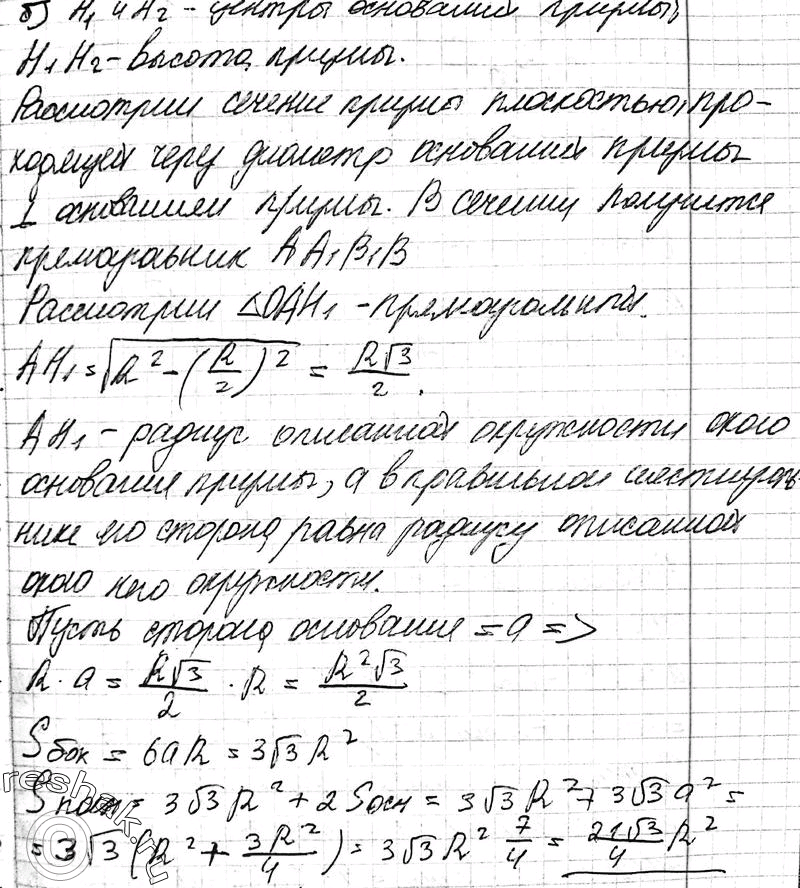 б) H₁ и H₂ - центры оснований призмы,
H₁H₂ - высота призмы.
Рассмотрим сечение призмы плоскостью, про-
ходящей через диаметр оснований призмы
⊥ основаниям призмы. В сечении получится
прямоугольник AA₁B₁B
Рассмотрим △OAH₁ - прямоугольный.
AH₁ = √(R² - (R/2)²) = R√3/2.
AH₁ - радиус описанной окружности около
основания призмы, а в правильном шестиуголь-
нике его сторона равна радиусу описанной
около него окружности.
Пусть сторона основания = a =>
R · a = R√3/2 · R = R²√3/2
Sбок = 6aR = 3√3R²
Sполн = 3√3R² + 2Sосн = 3√3R² + 3√3a² =
= 3√3(R² + 3R²/4) = 3√3R² 7/4 = 21√3/4 R²
reshak.ru